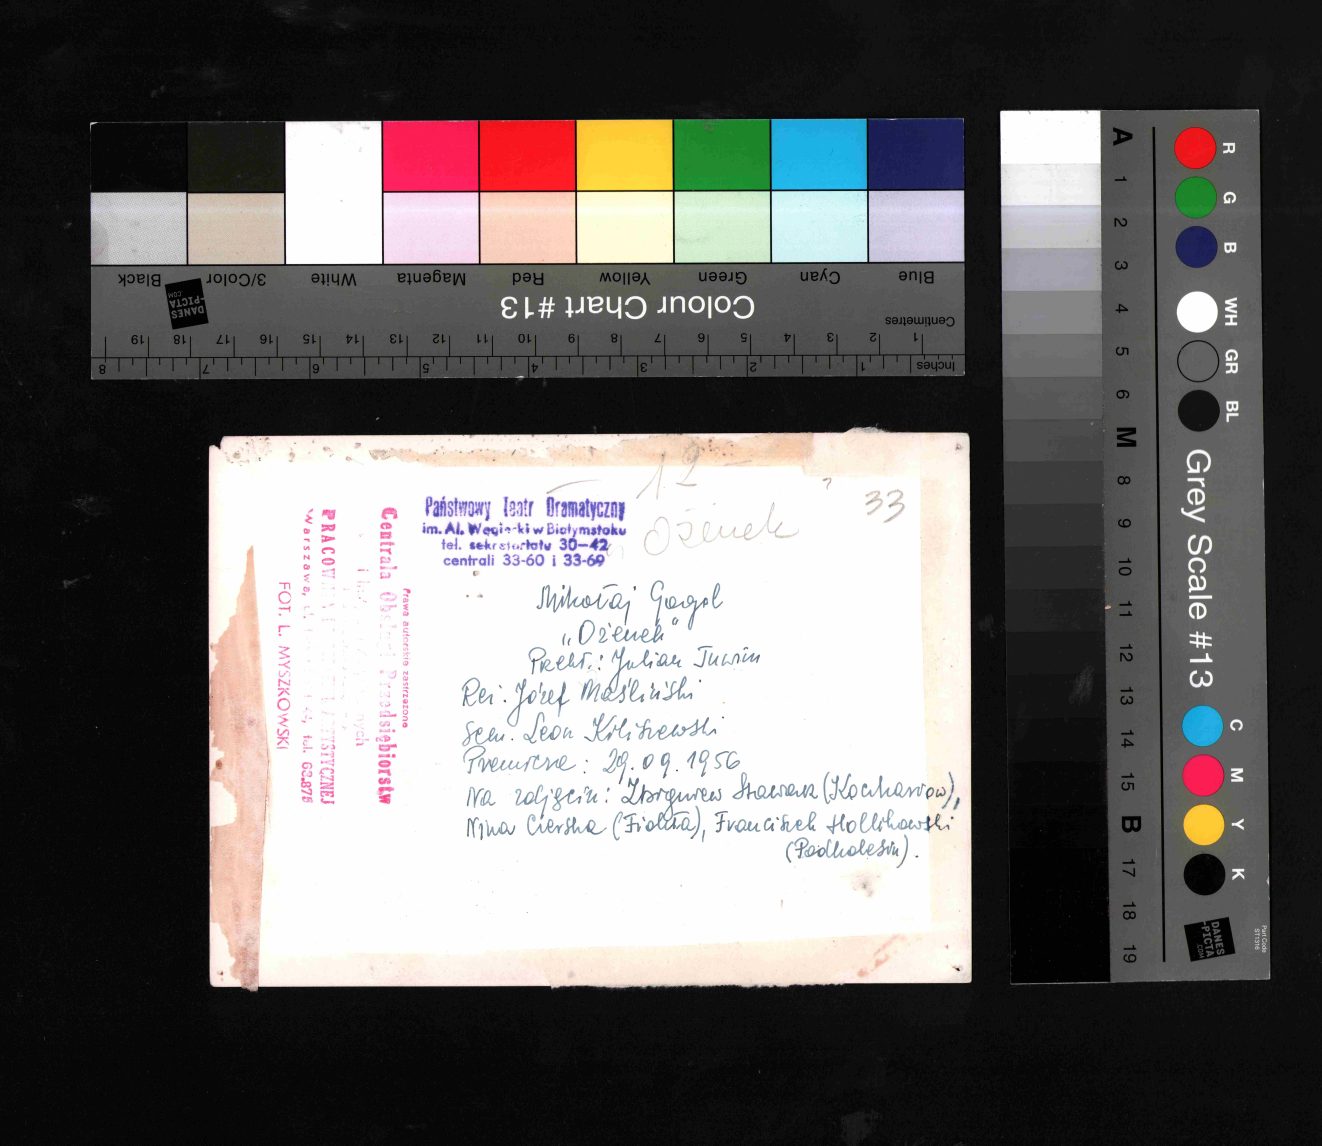 Black 3/Color White Magenta Red Yellow Green Cyan Blue
DANES
-PICTA
.COM
Colour Chart #13
Centimetres
19 18 17 16 15 14 13 12 11 10 9 8 7 6 5 4 3 2 1
8 7 6 5 4 3 2 1 Inches
A 1 2 3 4 5 6 M 8 9 10 11 12 13 14 15 B 17 18 19
R G B WH GR BL
Grey Scale #13
C M Y K
DANES
-PICTA
.COM
Part Code
ST1316
12
? 33
Ożenek
Państwowy Teatr Dramatyczny
im. Al. Węgierki w Białymstoku
tel. sekretariatu 30-42
centrali 33-60 i 33-69
Mikołaj Gogol
„Ożenek"
Przekł.: Julian Tuwim
Reż. Józef Maśliński
Scen. Leon Kiliszewski
Premiera: 29.09.1956
Na zdjęciu: Zbigniew Stawarz (Koczkariow),
Nina Cierska (Fiokła), Franciszek Hollikowski
(Podkolesin).
Prawa autorskie zastrzeżone
Centrala Obsługi Przedsiębiorstw
PRACOWNIA ARTYSTYCZNEJ
Warszawa, tel. 68.875
FOT. L. MYSZKOWSKI